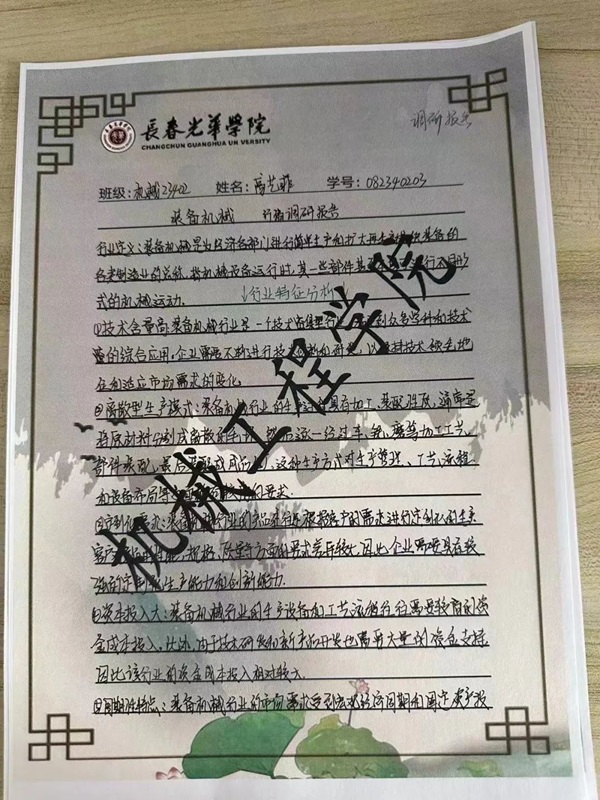 调研报告
長春光華學院
CHANGCHUN GUANGHUA UNIVERSITY
班级: 机械23402 姓名: 学号: 082340203
装备机械 行业调研报告
行业定义:装备机械是为经济各部门进行简单生产和扩大再生产提供装备的
各类制造业的总称,指机械设备运行时,其一些部件甚至 进行不同形
式的机械运动.
行业特征分析
①技术含量高:装备机械行业是一个技术密集型行业, 到众多学科和技术
的综合应用,企业需要不断进行技术创新和研发,以保持技术领先地
位和适应市场需求的变化
②离散型生产模式:装备机械行业的生产过程具有加工、装配性质,通常是
将原材料分割成 然后逐一经过车、铣、磨等加工工艺,
部件装配,最后装配成成品 ,这种生产方式对生产管理、工艺流程
和设备布局等 的要求.
③定制化需求:装备机械行业的产品往往是根据客户的需求进行定制化的生产,
客户 性能、规格、 等方面的要求差异较大,因此企业需要具有较
强的定制化生产能力和创新能力.
④资本投入大:装备机械行业的生产设备和工艺流程往往需要较高的资
金成本投入,此外,由于技术研发和新产品开发也需要大量的资金支持,
因此该行业的资金成本投入相对较大.
⑤周期性特点:装备机械行业的市场需求受到宏观经济周期和固定资产投
机械工程学院